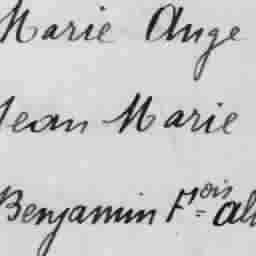 Marie Ange
Jean Marie
Benjamin F.ois al